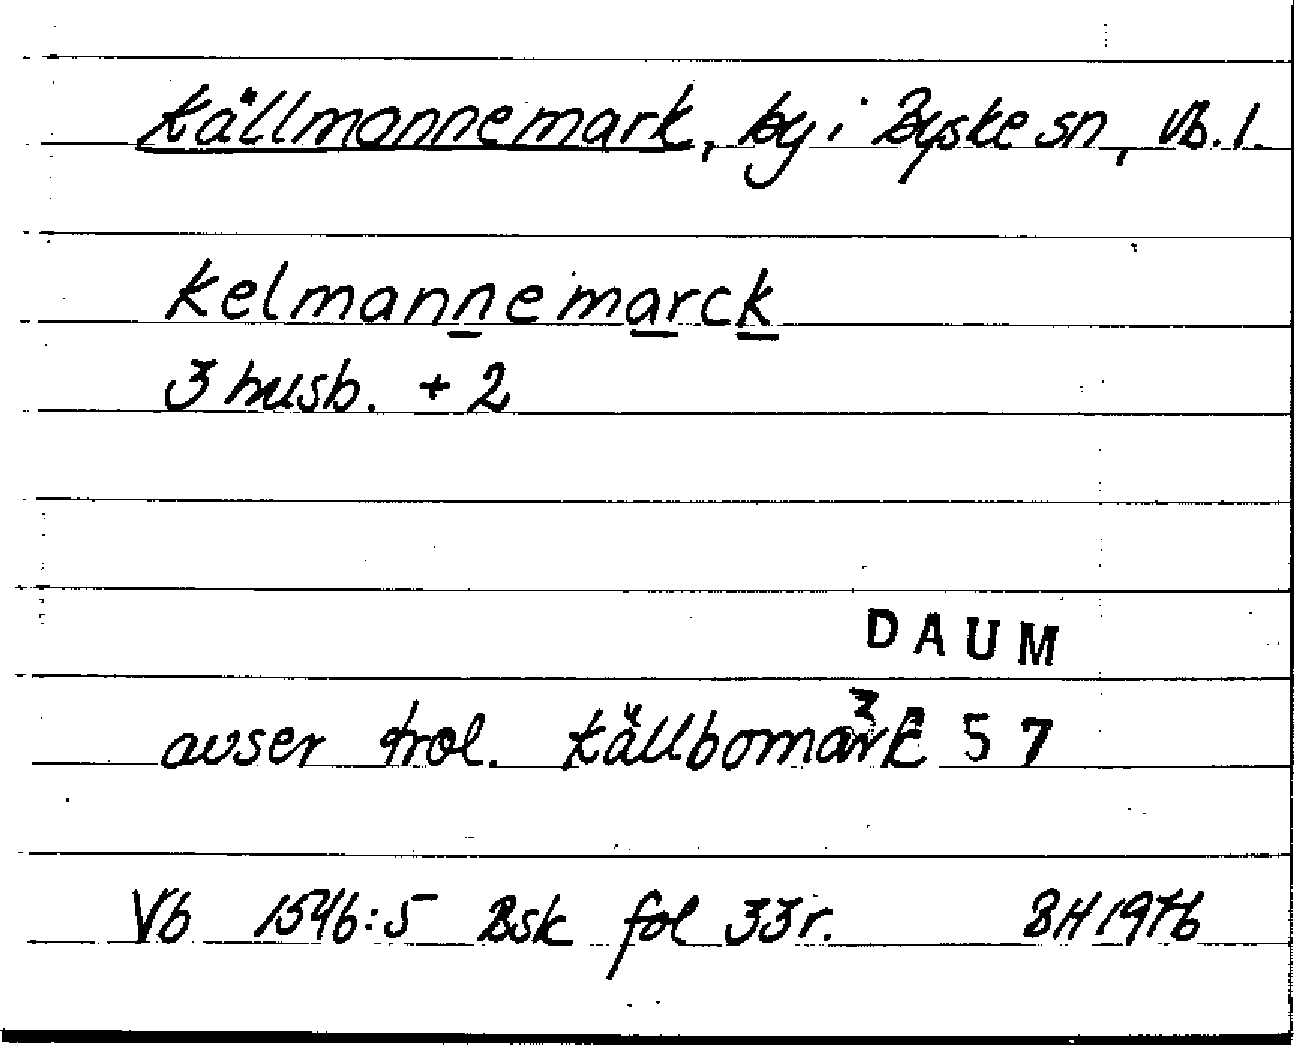 Källmannemark, by i Byske sn, Vb. l.
Kelmannemarck
3 husb. + 2
DAUM
3 5 7
avser trol. Källbomark
Vb 1546:5 Bsk fol 33r. BH 1976